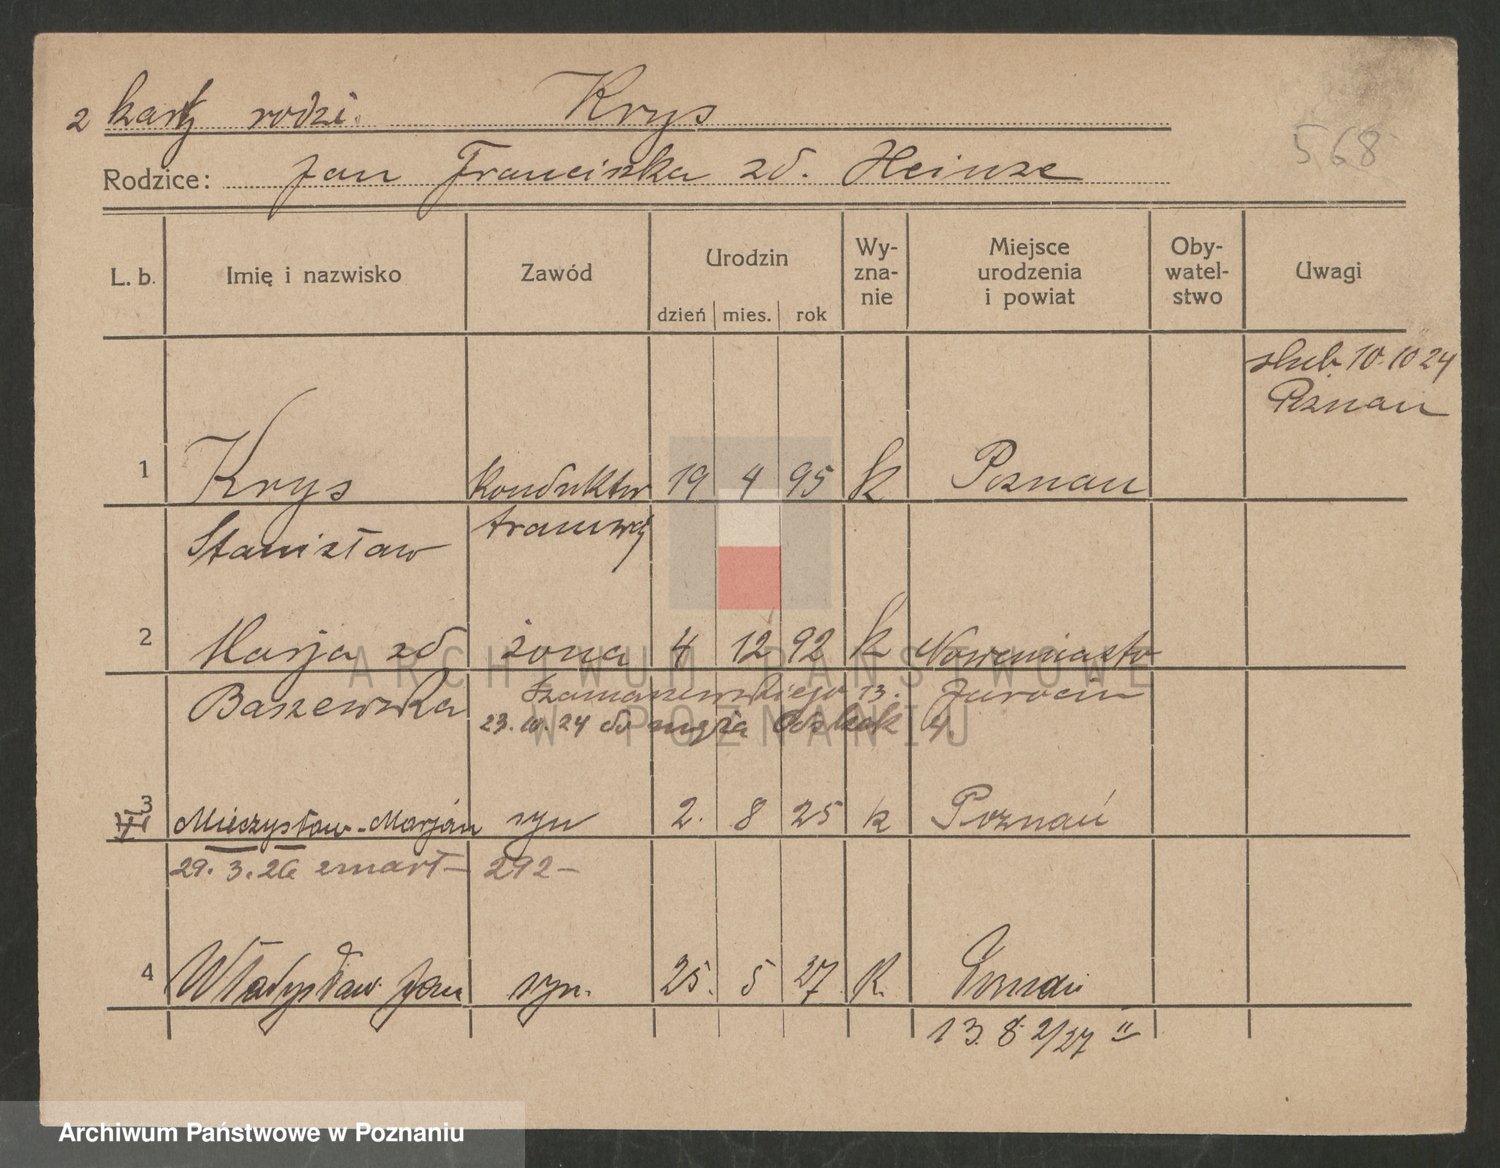 2 karty rodzi. Krys
568
Rodzice: Jan Franciszka zd. Heinze
L. b. Imię i nazwisko Zawód Urodzin dzień mies. rok Wy-zna-nie Miejsce urodzenia i powiat Oby-watel-stwo Uwagi
ślub. 10.10 24
Poznań
1 Krys konduktor 19 4 95 k Poznań
Stanisław tramwaj
2 Marja zd żona 4 12 92 k Nowemiasto
Baszewska Szamarzewskiego 13. Jarocin
23.10.24 do męża
3 Mieczysław-Marjan syn 2. 8 25 k Poznań
29. 3. 26 zmarł – 292 –
4 Władysław Jan syn. 25. 5 27 k. Poznań
13.8 2/27 II
ARCHIWUM PAŃSTWOWE
W POZNANIU
Archiwum Państwowe w Poznaniu